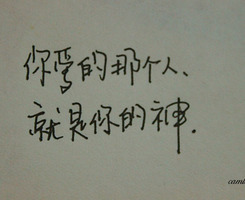 你爱的那个人、
就是你的神.